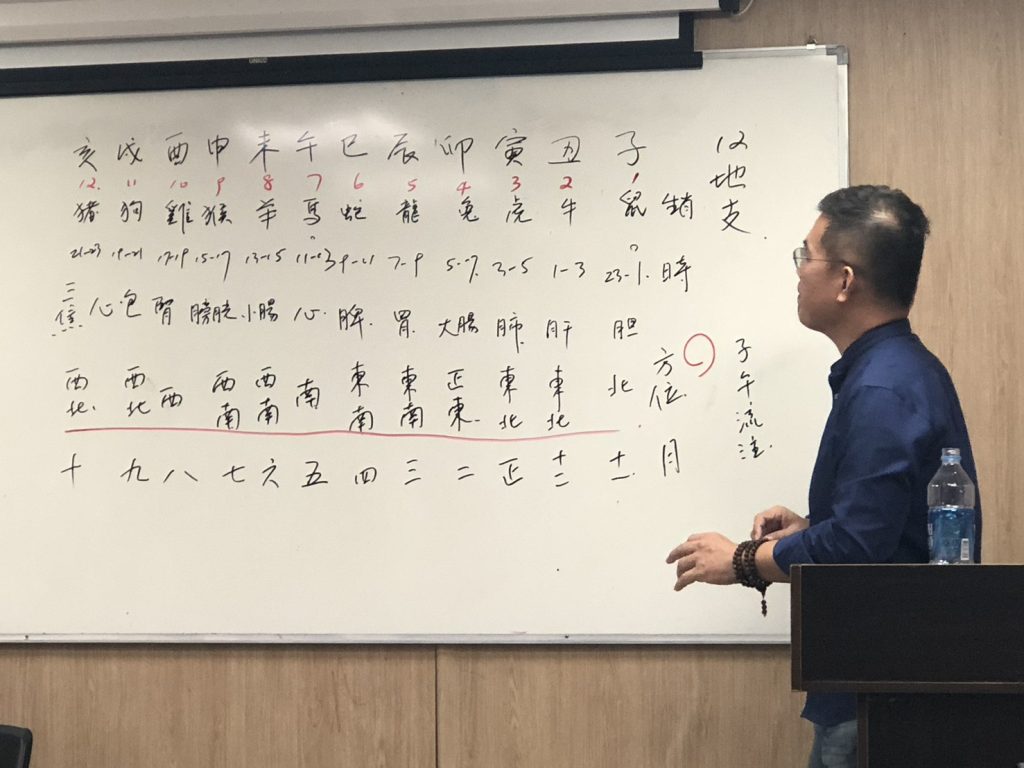 12地支
子 丑 寅 卯 辰 巳 午 未 申 酉 戌 亥
1 2 3 4 5 6 7 8 9 10 11 12.
生肖 鼠 牛 虎 兔 龍 蛇 馬 羊 猴 雞 狗 猪
時 23-1. 1-3 3-5 5-7. 7-9 9-11 11-13 13-15 15-17 17-19 19-21 21-23
胆 肝 肺. 大腸 胃. 脾. 心. 小腸 膀胱 腎 心包 三焦
方位. 北 東北 東北 正東. 東南 東南 南 西南 西南 西 西北 西北.
月 十一. 十二 正 二 三 四 五 六 七 八 九 十
子午流注.